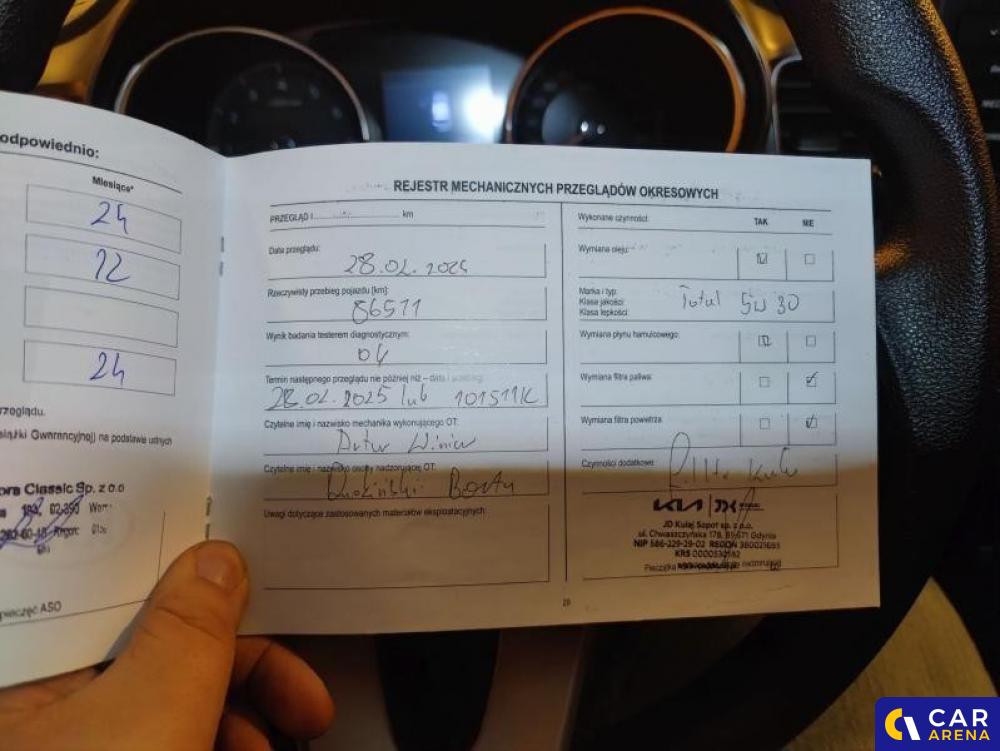 odpowiednio:
Miesiące*
24
12
24
rzeglądu.
siążki Gwarancyjnej) na podstawie
ora Classic Sp. z o.o
pieczęć ASO
REJESTR MECHANICZNYCH PRZEGLĄDÓW OKRESOWYCH
PRZEGLĄD I km
Data przeglądu:
28.02.2025
Rzeczywisty przebieg pojazdu [km]:
86511
Wynik badania testerem diagnostycznym:
Ok
Termin następnego przeglądu nie później niż – data i
28.02.2025 lub 101511K
Czytelne imię i nazwisko mechanika wykonującego OT:
Artur
Czytelne imię i nazwisko osoby nadzorującej OT:
Uwagi dotyczące zastosowanych materiałów eksploatacyjnych:
Wykonane czynności: TAK NIE
Wymiana oleju:
Marka i typ:
Klasa jakości:
Klasa lepkości:
Total 5W30
Wymiana płynu hamulcowego:
Wymiana filtra paliwa:
Wymiana filtra powietrza:
Czynności dodatkowe:
KIA JDK
JD Kulej Sopot sp. z o.o.
ul. Chwaszczyńska 178, 81-571 Gdynia
NIP 586-229-29-02 REGON
KRS
Pieczątka
29
CAR
ARENA